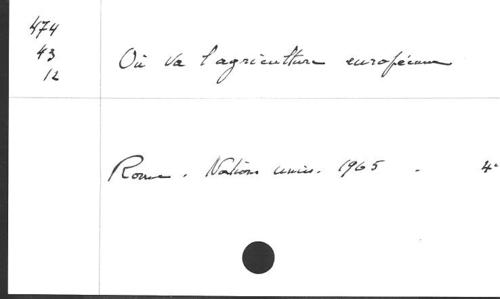 474
43
12
Où va l'agriculture européenne
Rome. Nations unies. 1965. 4°